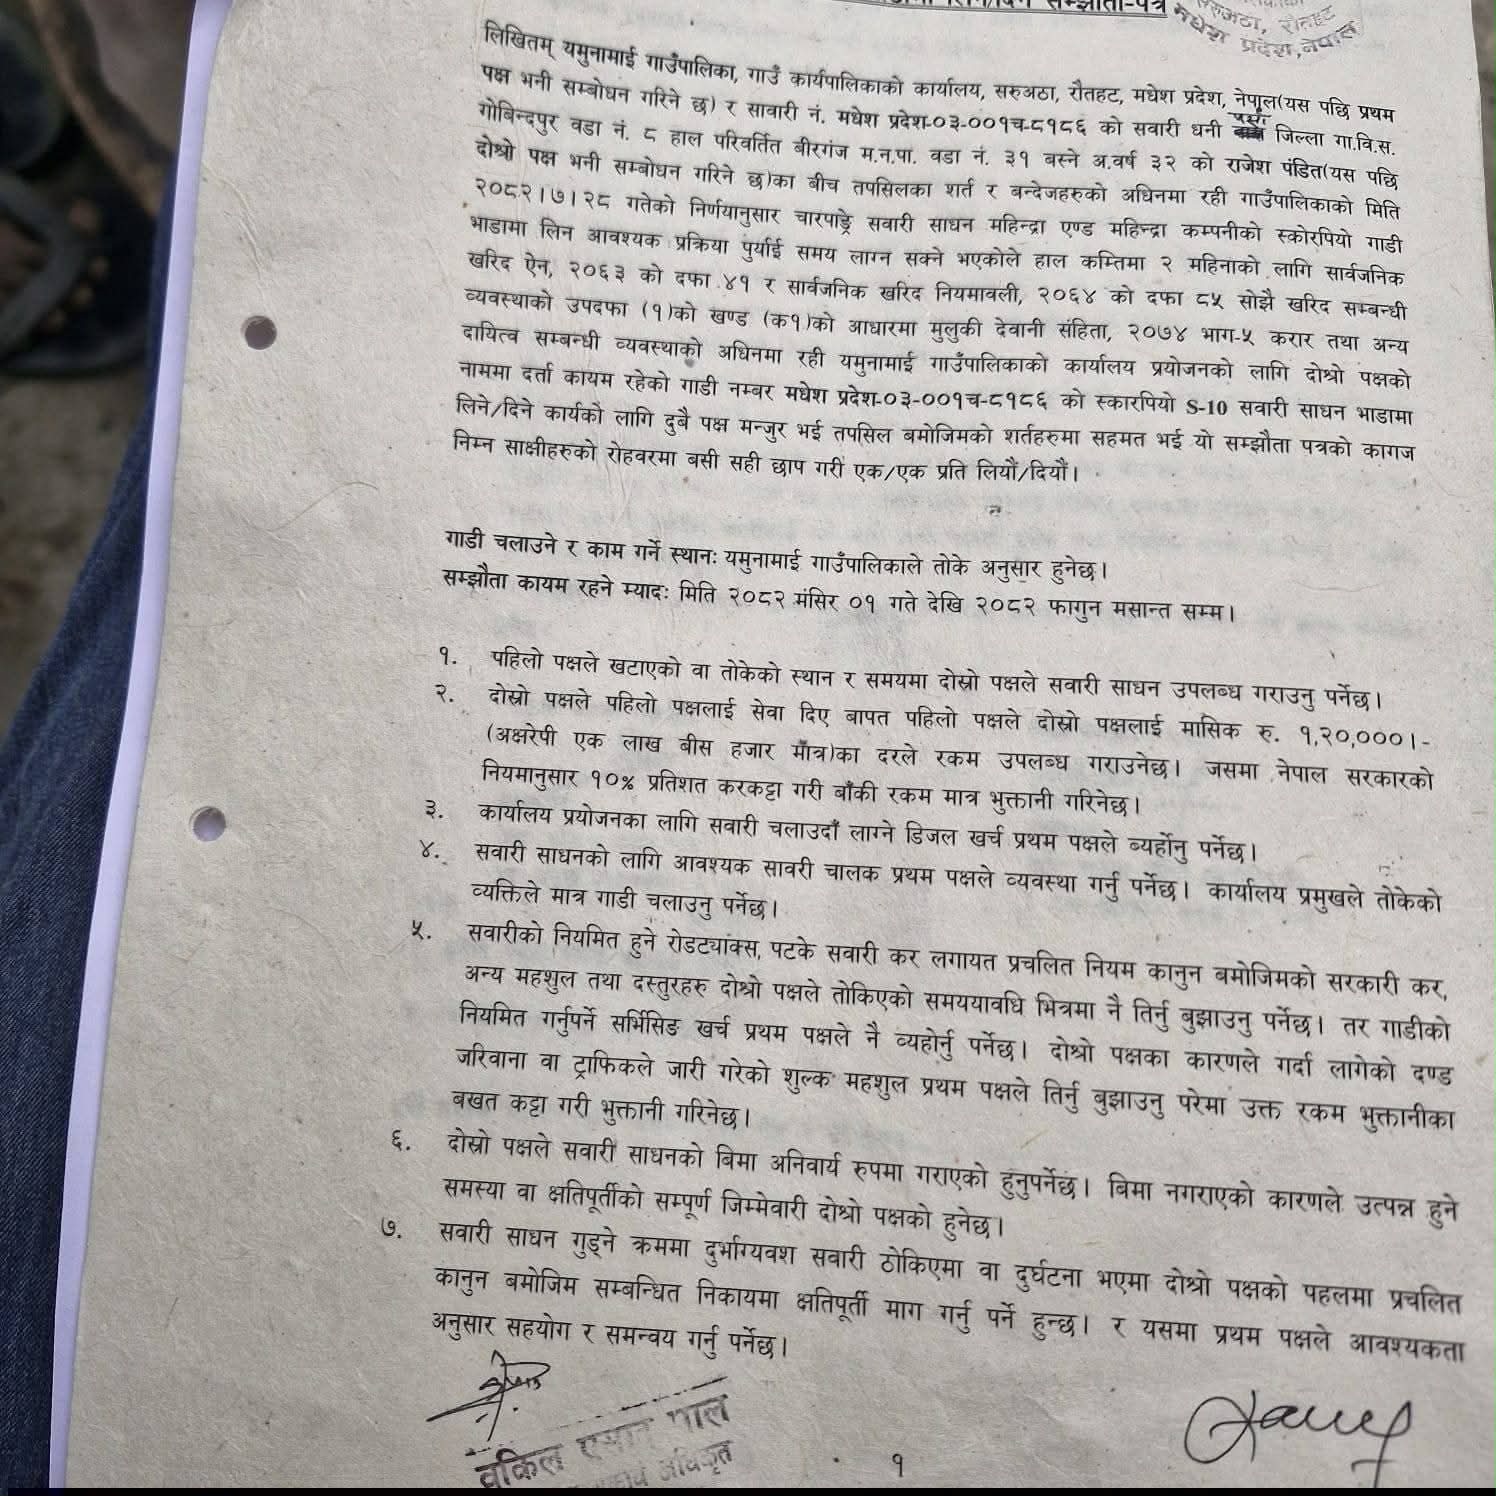 सम्झौता-पत्र
सरुअठा, रौतहट
मधेश प्रदेश, नेपाल
लिखितम् यमुनामाई गाउँपालिका, गाउँ कार्यपालिकाको कार्यालय, सरुअठा, रौतहट, मधेश प्रदेश, नेपाल(यस पछि प्रथम
पक्ष भनी सम्बोधन गरिने छ) र सावारी नं. मधेश प्रदेश-०३-००१च-८१८६ को सवारी धनी पर्सा जिल्ला गा.वि.स.
गोबिन्दपुर वडा नं. ८ हाल परिवर्तित बीरगंज म.न.पा. वडा नं. ३१ बस्ने अ.वर्ष ३२ को राजेश पंडित(यस पछि
दोश्रो पक्ष भनी सम्बोधन गरिने छ)का बीच तपसिलका शर्त र बन्देजहरुको अधिनमा रही गाउँपालिकाको मिति
२०८२।७।२८ गतेको निर्णयानुसार चारपाङ्ग्रे सवारी साधन महिन्द्रा एण्ड महिन्द्रा कम्पनीको स्कोरपियो गाडी
भाडामा लिन आवश्यक प्रक्रिया पुर्याई समय लाग्न सक्ने भएकोले हाल कम्तिमा २ महिनाको लागि सार्वजनिक
खरिद ऐन, २०६३ को दफा ४१ र सार्वजनिक खरिद नियमावली, २०६४ को दफा ८५ सोझै खरिद सम्बन्धी
व्यवस्थाको उपदफा (१)को खण्ड (क१)को आधारमा मुलुकी देवानी संहिता, २०७४ भाग-५ करार तथा अन्य
दायित्व सम्बन्धी व्यवस्थाको अधिनमा रही यमुनामाई गाउँपालिकाको कार्यालय प्रयोजनको लागि दोश्रो पक्षको
नाममा दर्ता कायम रहेको गाडी नम्बर मधेश प्रदेश-०३-००१च-८१८६ को स्कारपियो S-10 सवारी साधन भाडामा
लिने/दिने कार्यको लागि दुबै पक्ष मन्जुर भई तपसिल बमोजिमको शर्तहरुमा सहमत भई यो सम्झौता पत्रको कागज
निम्न साक्षीहरुको रोहवरमा बसी सही छाप गरी एक/एक प्रति लियौं/दियौं।
गाडी चलाउने र काम गर्ने स्थानः यमुनामाई गाउँपालिकाले तोके अनुसार हुनेछ।
सम्झौता कायम रहने म्यादः मिति २०८२ मंसिर ०१ गते देखि २०८२ फागुन मसान्त सम्म।
१. पहिलो पक्षले खटाएको वा तोकेको स्थान र समयमा दोस्रो पक्षले सवारी साधन उपलब्ध गराउनु पर्नेछ।
२. दोस्रो पक्षले पहिलो पक्षलाई सेवा दिए बापत पहिलो पक्षले दोस्रो पक्षलाई मासिक रु. १,२०,०००।-
(अक्षरेपी एक लाख बीस हजार मात्र)का दरले रकम उपलब्ध गराउनेछ। जसमा नेपाल सरकारको
नियमानुसार १०% प्रतिशत करकट्टा गरी बाँकी रकम मात्र भुक्तानी गरिनेछ।
३. कार्यालय प्रयोजनका लागि सवारी चलाउदाँ लाग्ने डिजल खर्च प्रथम पक्षले ब्यर्होनु पर्नेछ।
४. सवारी साधनको लागि आवश्यक सावरी चालक प्रथम पक्षले व्यवस्था गर्नु पर्नेछ। कार्यालय प्रमुखले तोकेको
व्यक्तिले मात्र गाडी चलाउनु पर्नेछ।
५. सवारीको नियमित हुने रोडट्याक्स, पटके सवारी कर लगायत प्रचलित नियम कानुन बमोजिमको सरकारी कर,
अन्य महशुल तथा दस्तुरहरु दोश्रो पक्षले तोकिएको समययावधि भित्रमा नै तिर्नु बुझाउनु पर्नेछ। तर गाडीको
नियमित गर्नुपर्ने सर्भिसिङ खर्च प्रथम पक्षले नै व्यहोर्नु पर्नेछ। दोश्रो पक्षका कारणले गर्दा लागेको दण्ड
जरिवाना वा ट्राफिकले जारी गरेको शुल्क महशुल प्रथम पक्षले तिर्नु बुझाउनु परेमा उक्त रकम भुक्तानीका
बखत कट्टा गरी भुक्तानी गरिनेछ।
६. दोस्रो पक्षले सवारी साधनको बिमा अनिवार्य रुपमा गराएको हुनुपर्नेछ। बिमा नगराएको कारणले उत्पन्न हुने
समस्या वा क्षतिपूर्तीको सम्पूर्ण जिम्मेवारी दोश्रो पक्षको हुनेछ।
७. सवारी साधन गुड्ने क्रममा दुर्भाग्यवश सवारी ठोकिएमा वा दुर्घटना भएमा दोश्रो पक्षको पहलमा प्रचलित
कानुन बमोजिम सम्बन्धित निकायमा क्षतिपूर्ती माग गर्नु पर्ने हुन्छ। र यसमा प्रथम पक्षले आवश्यकता
अनुसार सहयोग र समन्वय गर्नु पर्नेछ।
वकिल पाल
अधिकृत
१